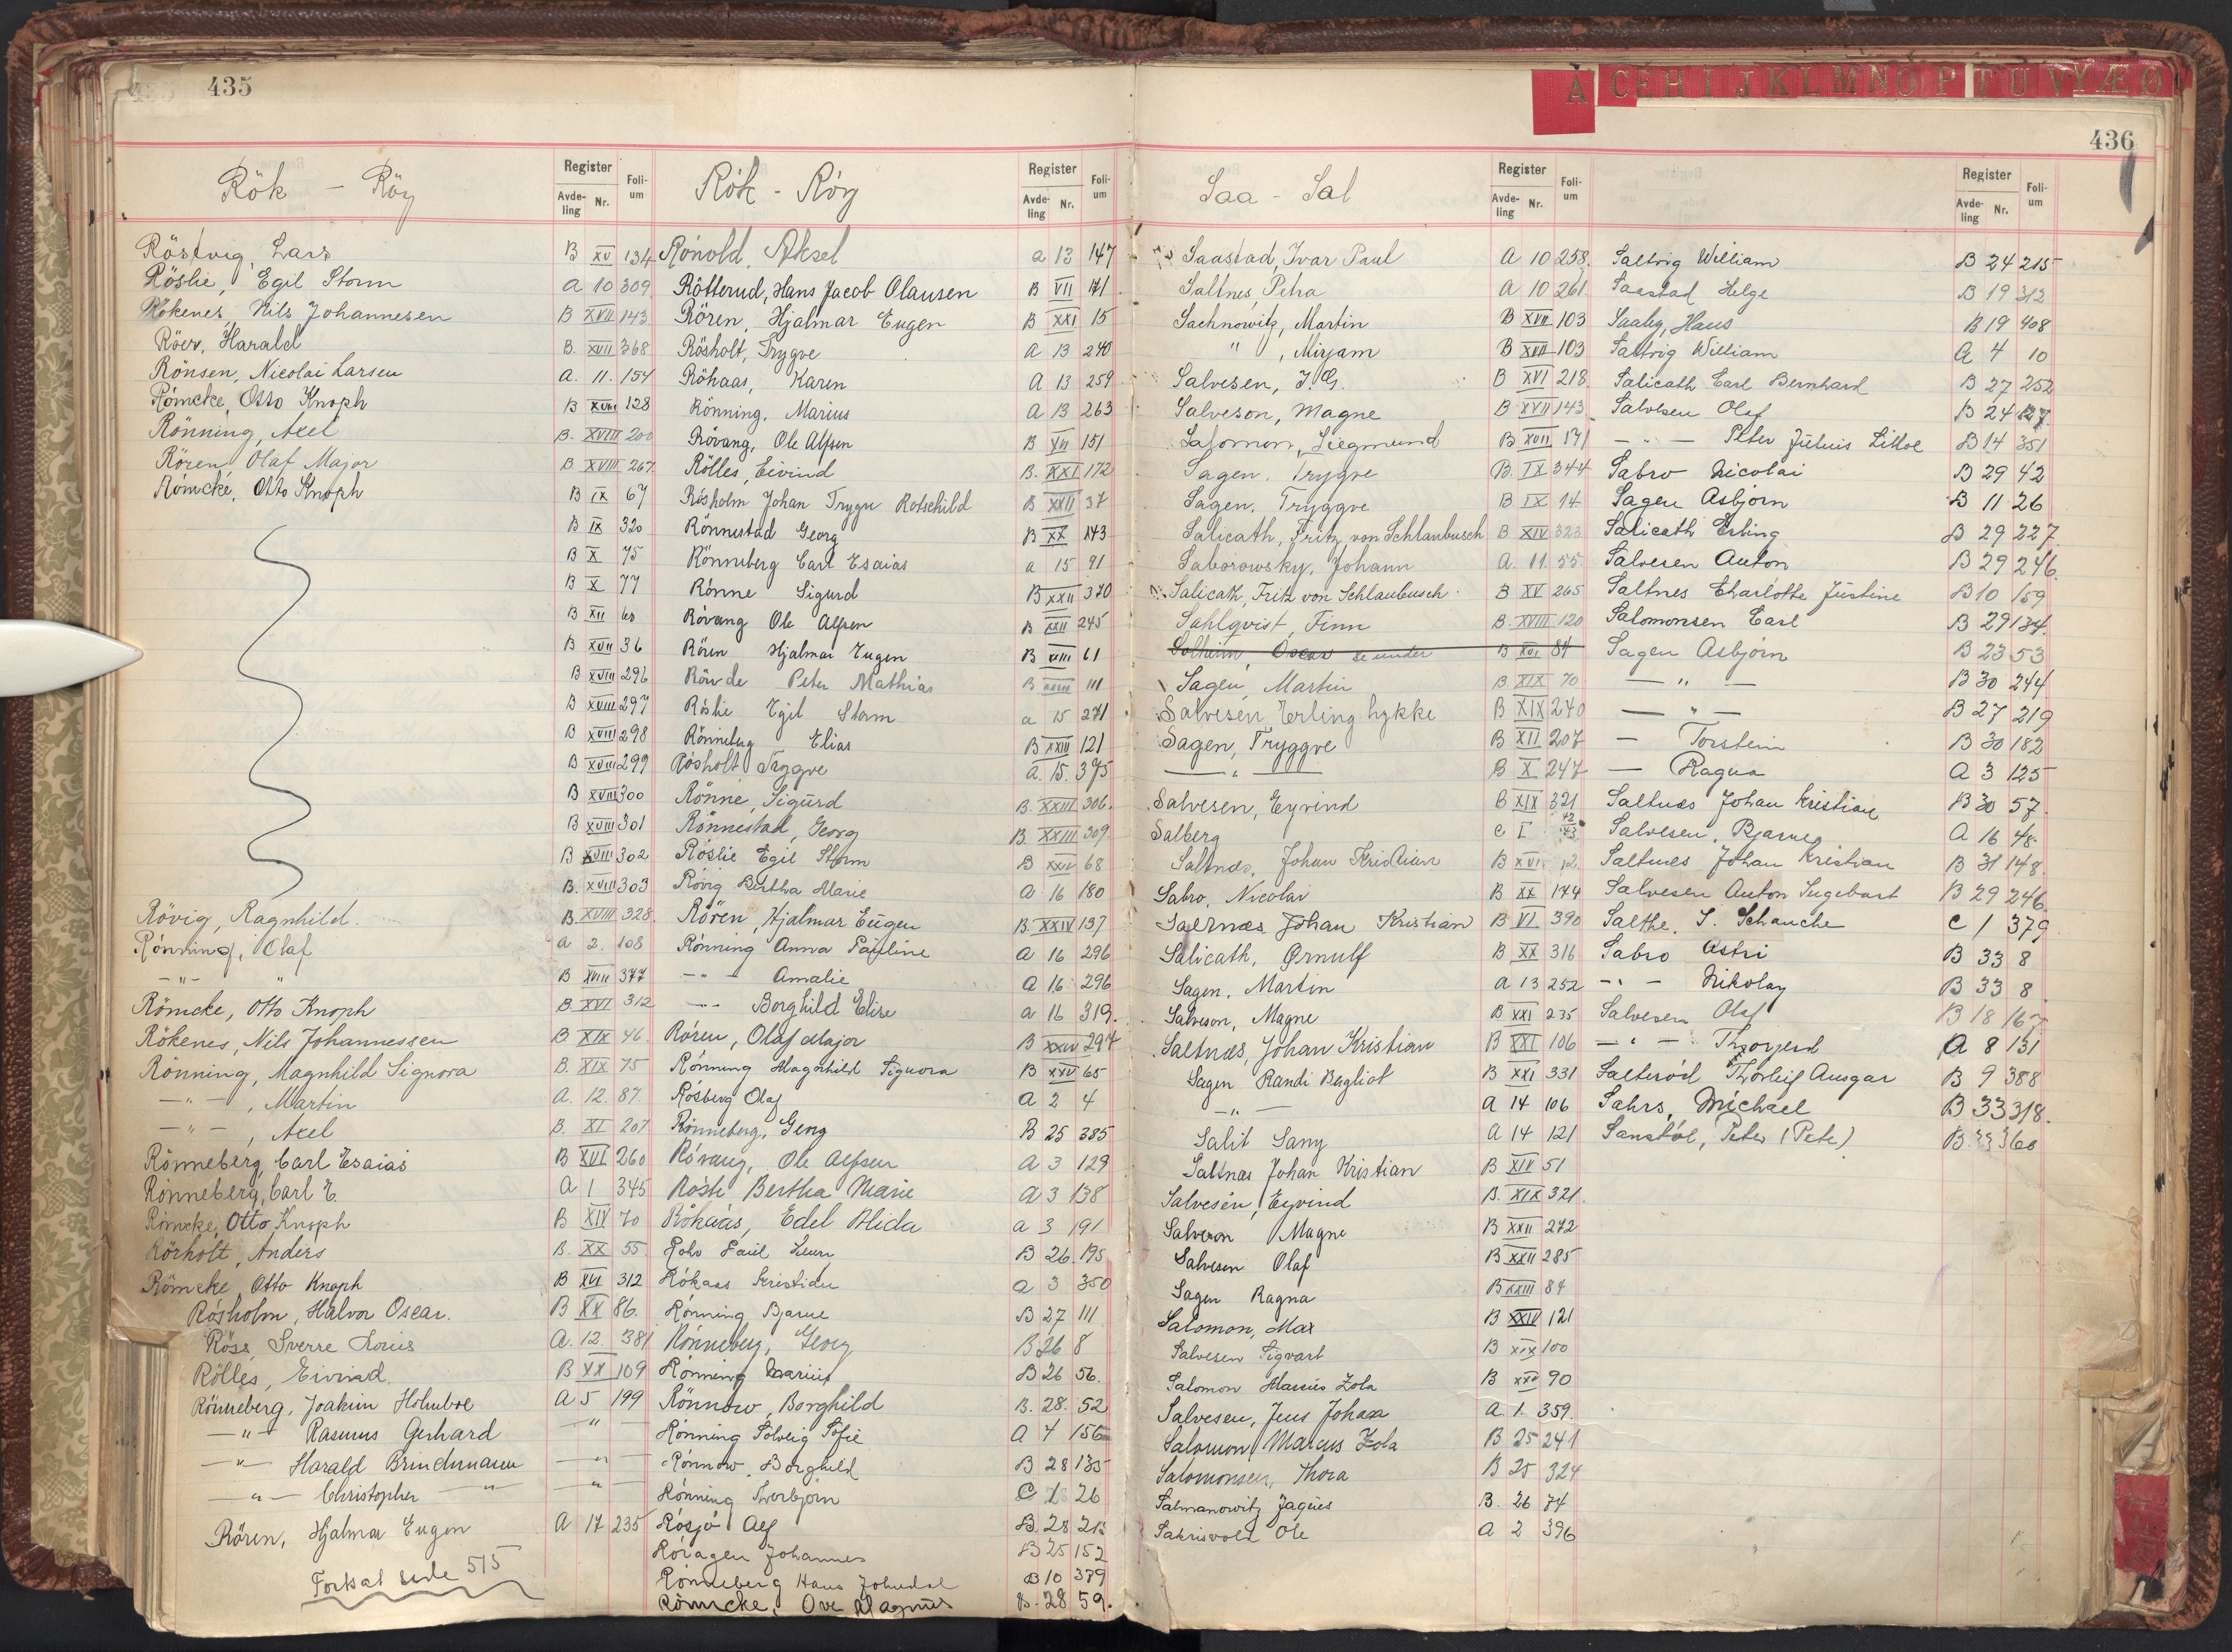 435
Rök - Röy
Register
Avdeling Nr.
Folium
Röstvig, Lars B XV 134
Röslie, Egil Storm a 10 309
Rökenes, Nils Johannesen B XVII 143
Röer, Harald B. XVII 368
Rönsen, Nicolai Larsen a. 11. 154
Römcke, Otto Knoph B XVIII 128
Rönning, Axel B. XVIII 200
Rören, Olaf Major B. XVIII 267
Römcke, Otto Knoph B IX 67
B IX 320
B X 75
B X 77
B XII 60
B XVII 36
B XVIII 296
B XVIII 297
B XVIII 298
B XVIII 299
B XVIII 300
B XVIII 301
B XVIII 302
B. XVIII 303
Rövig, Ragnhild. B. XVIII 328
Rönning, Olaf a 2. 108
-"- " B XVIII 377
Römcke, Otto Knoph B XVI 312
Rökenes, Nils Johannessen B XIX 46
Rönning, Magnhild Signora B. XIX 75
-"- , Martin A. 12. 87.
-"- , Axel B. XI 207
Rönneberg, Carl Esaias B XVI 260
Rönneberg, Carl E. A 1 345
Römcke, Otto Knoph B XIV 70
Rörholt, Anders B. XX 55
Römcke, Otto Knoph B XVI 312
Rösholm, Halvor Oscar. B XX 86.
Röss, Sverre Louis A. 12. 381
Rölles, Eivind. B XX 109
Rönneberg, Joakim Holmboe A 5 199
-"- Rasmus Gerhard -"-
-"- Harald Brinchmann -"-
-"- Christopher -"- -"-
Rören, Hjalmar Eugen A 17 235
Fortsat side 515
Rök - Röy
Register
Avdeling Nr.
Folium
Rönold, Aksel a 13 147
Rötterud, Hans Jacob Olausen B VII 171
Rören, Hjalmar Eugen B XXI 15
Rösholt, Trygve A 13 240
Röhaas, Karen A 13 259
Rönning, Marius A 13 263
Rövang, Ole Alfsen B XII 151
Rölles, Eivind B. XXI 172
Rösholm Johan Trygve Rotschild B XXII 37
Rönnestad Georg B XX 143
Rönneberg Carl Esaias a 15 91
Rönne Sigurd B XXII 370
Rövang Ole Alfsen B XXII 245
Rören Hjalmar Eugen B XXIII 61
Peter Mathias 111
Röslie Egil Storm a 15 271
Rönneberg Elias B XXIII 121
Rösholt Trygve a. 15. 375
Rönne, Sigurd B. XXIII 306.
Rönnestad, Georg B. XXIII 309.
Röslie Egil Storm B XXIV 68
Rövig Bertha Marie a 16 180
Rören, Hjalmar Eugen B. XXIV 137
Rönning Anna Pauline A 16 296
-"- Amalie A 16 296
-"- Borghild Elise a 16 319.
Rören, Olaf Major B XXIV 297
Rönning Magnhild Signora B XXV 65
Rösberg Olaf A 2 4
Rönneberg, Georg B 25 385
Rövang, Ole Alfsen A 3 129
Bertha Marie A 3 138
Röhaas, Edel Alida a 3 191
B 26 195
Röhaas Kristian a 3 350
Rönning Bjarne B 27 111
Rönneberg, Georg B 26 8
Rönning Marius B 26 56.
Rönnow, Borghild B. 28. 52
Rönning Solveig Sofie A 4 156
Rönnow, Borghild B 28 135
Rönning Torbjørn C 1 26
Rösjö Alf B 28 213
Röragen Johannes B 25 152
Rönneberg Hans Johndal B 10 379
Römcke, Ove Magnus B. 28 59.
436
A C E H I J K L M N O P T U V Y Æ Ø
Saa - Sal
Register
Avdeling Nr.
Folium
Saastad, Ivar Paul A 10 258.
Saltnes, Petra A 10 261
Sachnowitz, Martin B XVII 103
" , Mirjam B XVII 103
Salvesen, J. G. B XVI 218
Salveson, Magne B XVII 143
Salomon, Siegmund B XVII 171
Sagen, Trygve B. IX 344
Sagen, Tryggve B IX 14
Salicath, Fritz von Schlanbusch B XIV 323
Saborowsky, Johann A. 11. 55
Salicath, Fritz von Schlanbusch B XV 265
Sahlqvist, Finn B. XVIII 120
Solheim, Oscar se under B XVI 84
Sagen, Martin B. XIX 70
Salvesen, Erling Lykke B XIX 240
Sagen, Tryggve B XII 207
-"- B X 247
Salvesen, Eyvind B XIX 321
Salberg C I 42 43
Saltnæs, Johan Kristian B XVI 12
Sabro, Nicolai B XX 144
Johan Kristian B VI 390
Salicath, Ørnulf B XX 316
Sagen, Martin A 13 252
Salveson, Magne B XXI 235
Saltnæs, Johan Kristian B XXI 106
Sagen Randi Bergliot B XXI 331
-"- A 14 106
Salit Sany A 14 121
Saltnæs Johan Kristian B XIV 51
Salvesen, Eyvind B. XIX 321.
Salveson Magne B XXII 272
Salvesen Olaf B XXII 285
Sagen Ragna B XXIII 84
Salomon, Max B XXIV 121
Salvesen Sigvart B XIX 100
Salomon Marcus Zola B XXV 90
Salvesen, Jens Johan A. 1. 359.
Salomon Marcus Zola B 25 241
Salomonsen, Thora B 25 324
Salmanowitz Jaques B. 26 74
Sakrisvold Ole A 2 396
Register
Avdeling Nr.
Folium
Saltvig William B 24 215
Saastad Helge B 19 312
Saaby, Hans B 19 408
Saltvig William A 4 10
Salicath Carl Bernhard B 27 252
Salvesen Olaf B 24 127
-"- Peter Julius Littoe B 14 351
Sabro Nicolai B 29 42
Sagen Asbjørn B 11 26
Salicath Erling B 29 227.
Salvesen Anton B 29 246.
Saltnes Charlotte Justine B 10 159
Salomonsen Carl B 29 134.
Sagen Asbjørn B 23 53
-"- B 30 244
-"- B 27 219
- Torstein B 30 182
- Ragna A 3 125
Saltnes Johan Kristian B 30 57.
Salvesen, Bjarne A 16 48.
Saltnes Johan Kristian B 31 148.
Salvesen Anton Ingebart B 29 246.
Salthe, S. Schanche C 1 379
Sabro Astri B 33 8
-"- Nikolay B 33 8
Salvesen Olaf B 18 167
-"- Thorgerd A 8 131
Salterød Thorleif Ansgar B 9 388
Sahrs, Michael B 33 318.
Peter (Pete) B 33 360